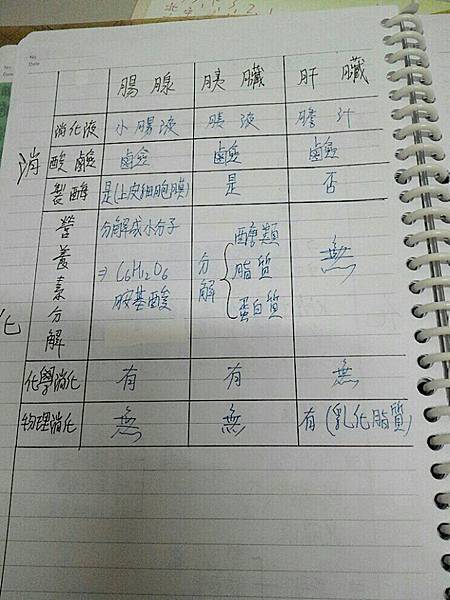 No.
Date
腸腺 胰臟 肝臟
消化液 小腸液 胰液 膽汁
酸鹼 鹵鹼 鹵鹼 鹵鹼
製酶 是(上皮細胞膜) 是 否
營養素分解
分解成小分子
⇒ C6H12O6
胺基酸
分解 { 醣類
脂質
蛋白質
無
化學消化 有 有 無
物理消化 無 無 有(乳化脂質)
消
化